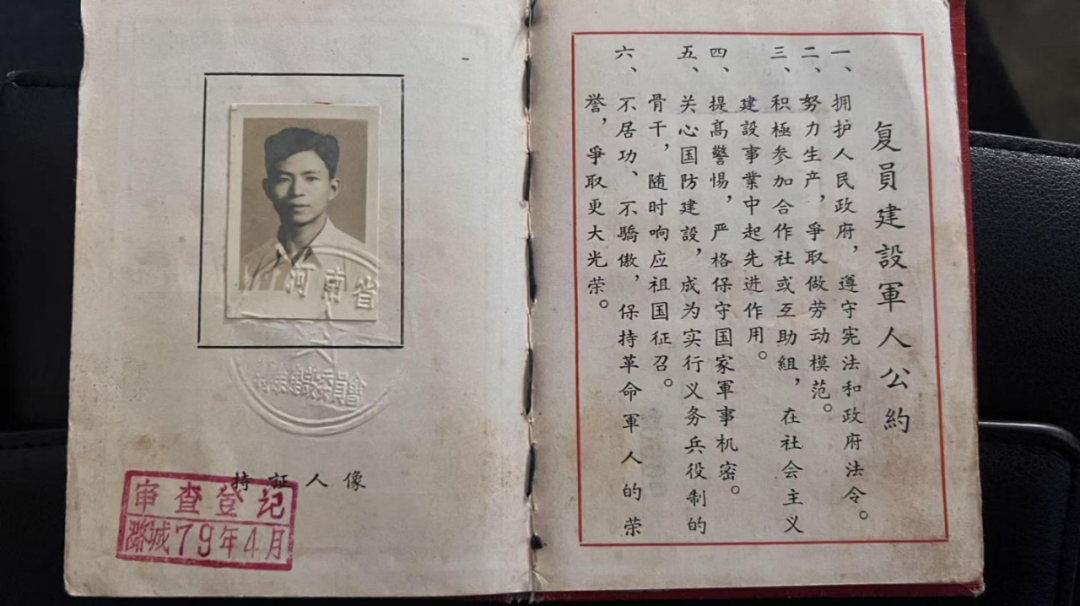 河南省
建設委員會
持証人像
审查登记
潞城79年4月
复員建設軍人公約
一、拥护人民政府，遵守宪法和政府法令。
二、努力生产，爭取做劳动模范。
三、积極参加合作社或互助組，在社会主义
建設事業中起先进作用。
四、提高警惕，严格保守国家軍事机密。
五、关心国防建設，成为实行义务兵役制的
骨干，随时响应祖国征召。
六、不居功、不驕傲，保持革命軍人的荣
誉，爭取更大光荣。